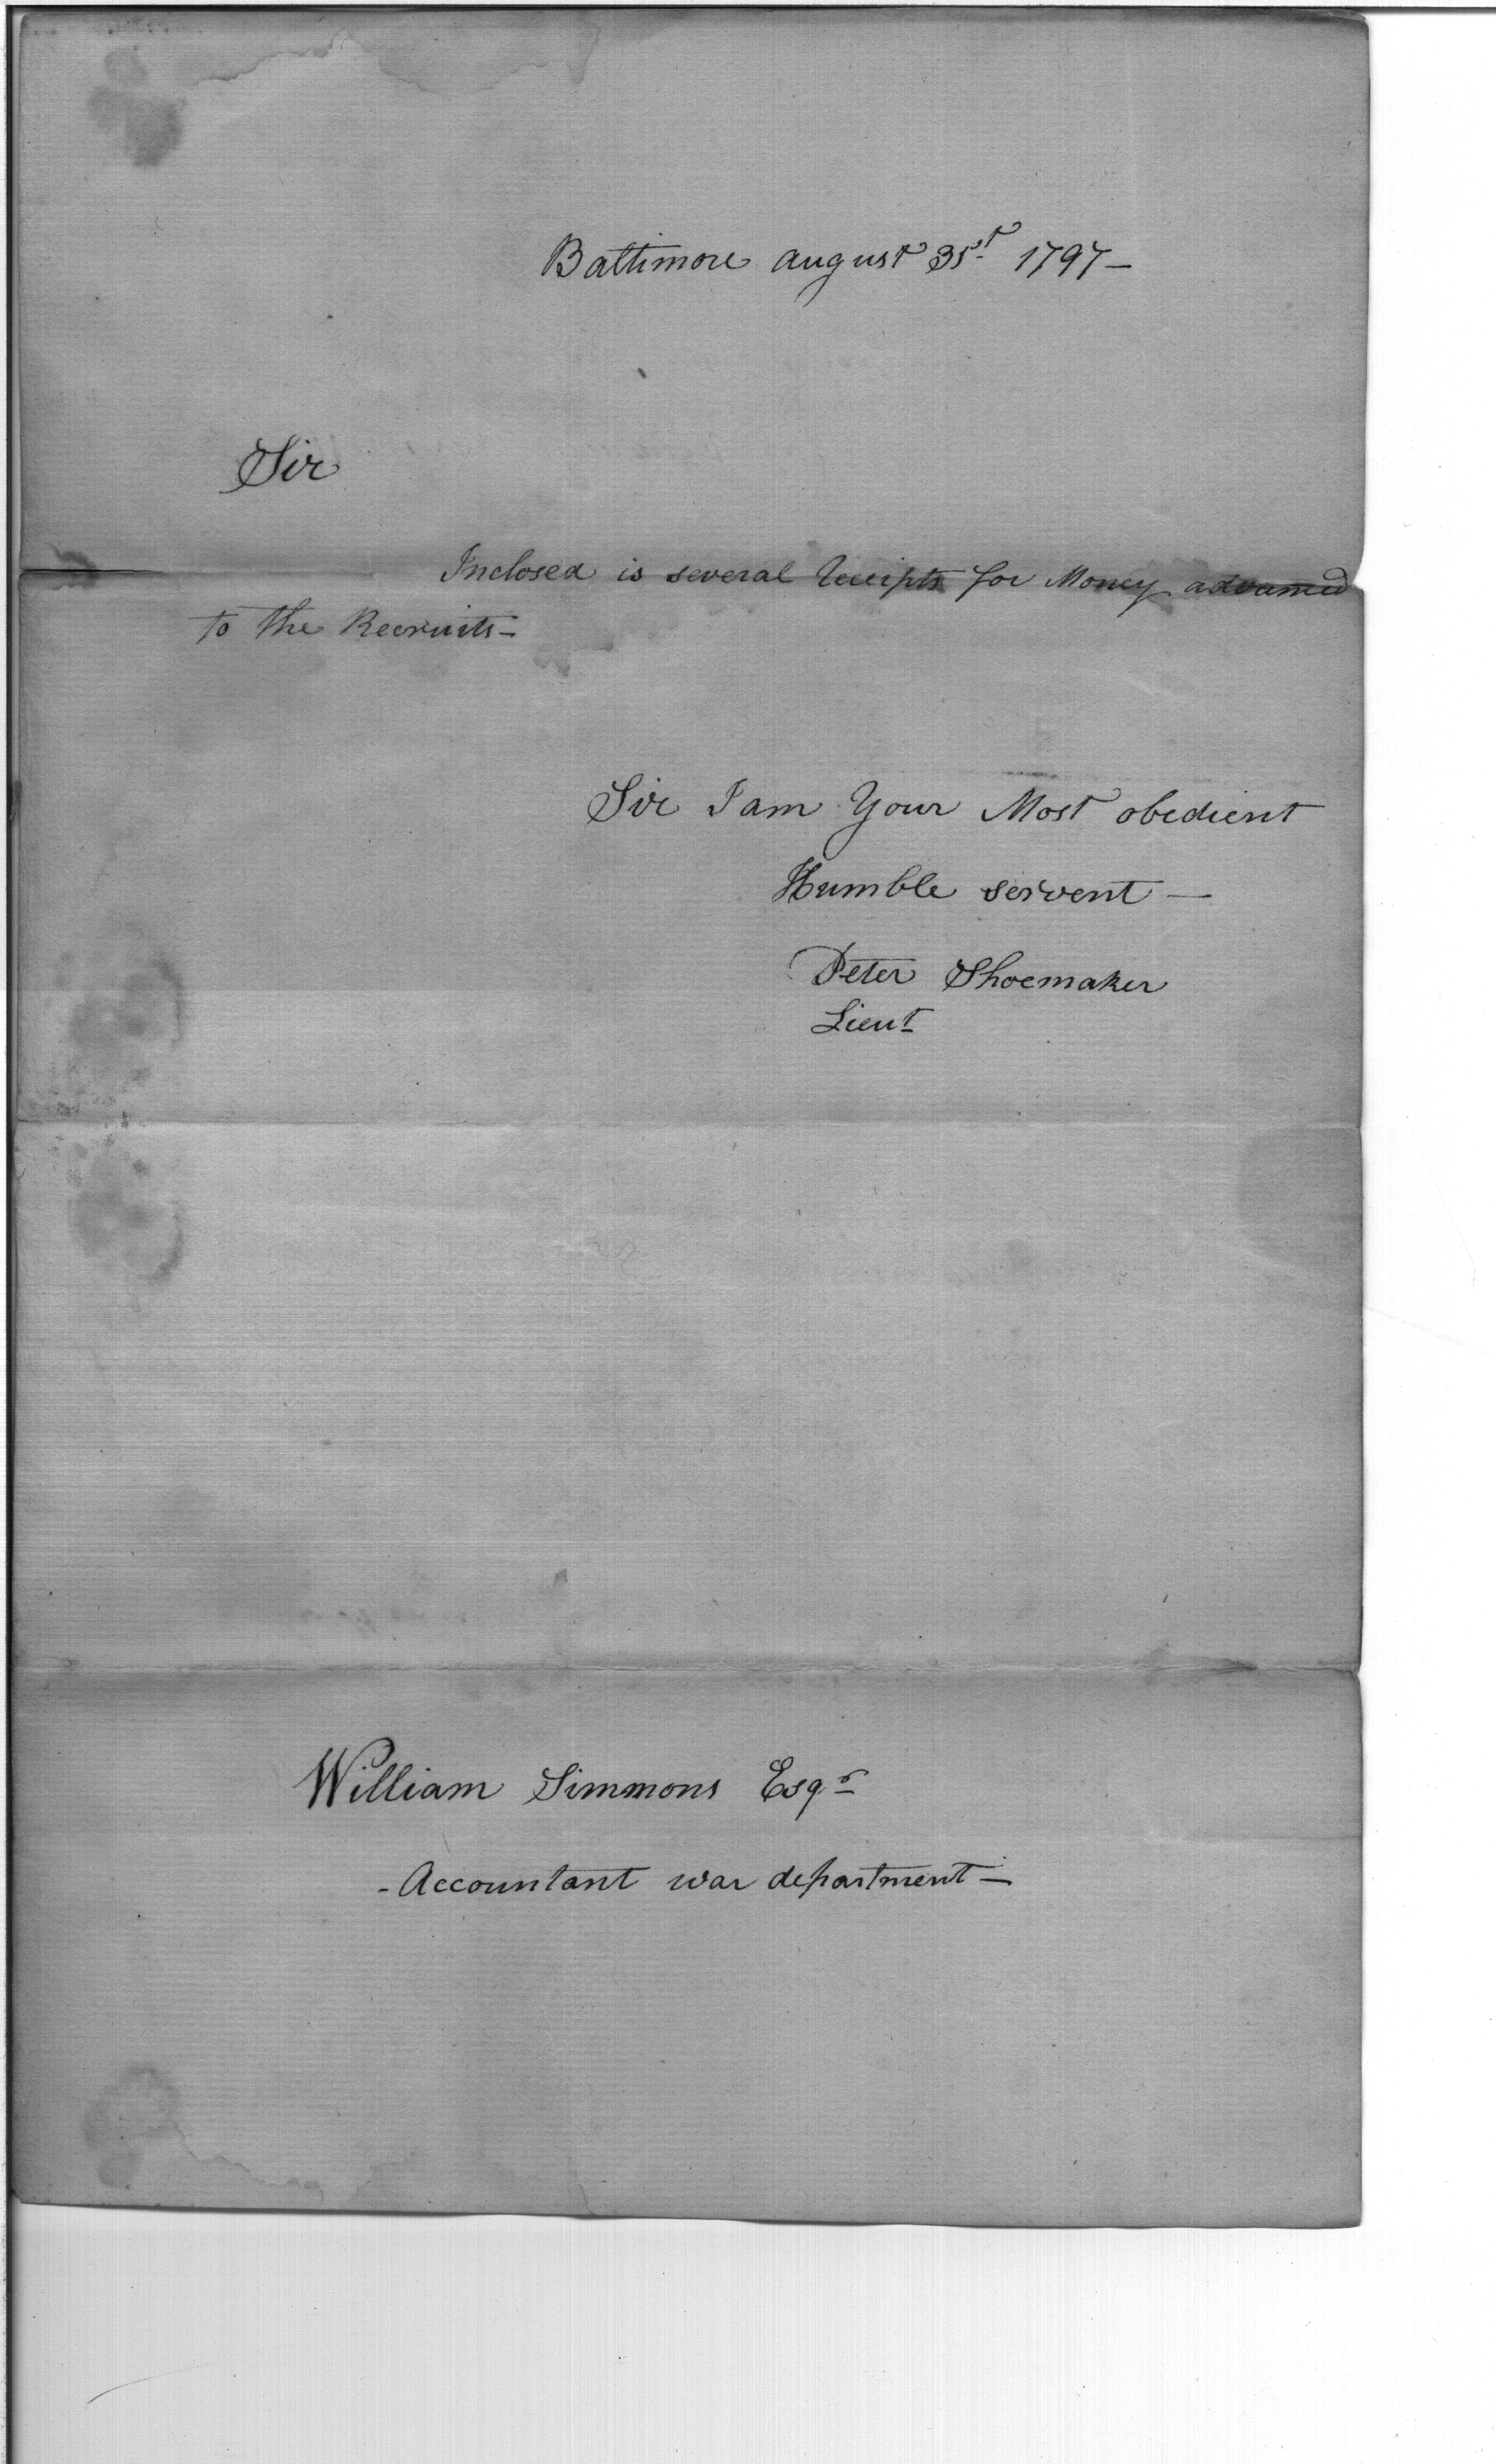 Baltimore august 31st 1797 —
Sir
Inclosed is several Receipts for Money advanced
to the Recruits —
Sir I am Your Most obedient
Humble servent —
Peter Shoemaker
Lieut
William Simmons Esqr
- Accountant war department —